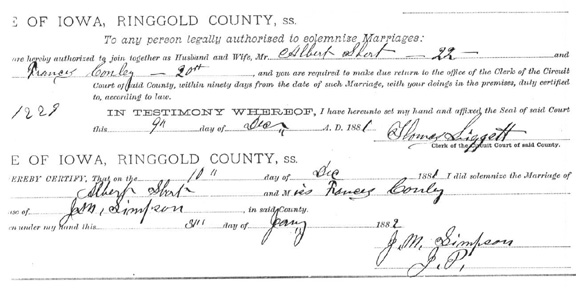 E OF IOWA, RINGGOLD COUNTY, ss.
To any person legally authorised to solemnize Marriages:
are hereby authorized to join together as Husband and Wife, Mr. Albert Short — 22 — and
Frances Conley — 20th, and you are required to make due return to the office of the Clerk of the Circuit
Court of said County, within ninety days from the date of such Marriage, with your doings in the premises, duly certified
to, according to law.
1229 IN TESTIMONY WHEREOF, I have hereunto set my hand and affixed the Seal of said Court
this 9th day of Dec A. D. 1881 Thomas Liggett
Clerk of the Circuit Court of said County.
E OF IOWA, RINGGOLD COUNTY, ss.
HEREBY CERTIFY, That on the 10" day of Dec 1881, I did solemnize the Marriage of
Albert Short and Miss Frances Conley
use of J. M. Simpson, in said County.
en under my hand this 3" day of Jany 1882
J. M. Simpson
J. P.